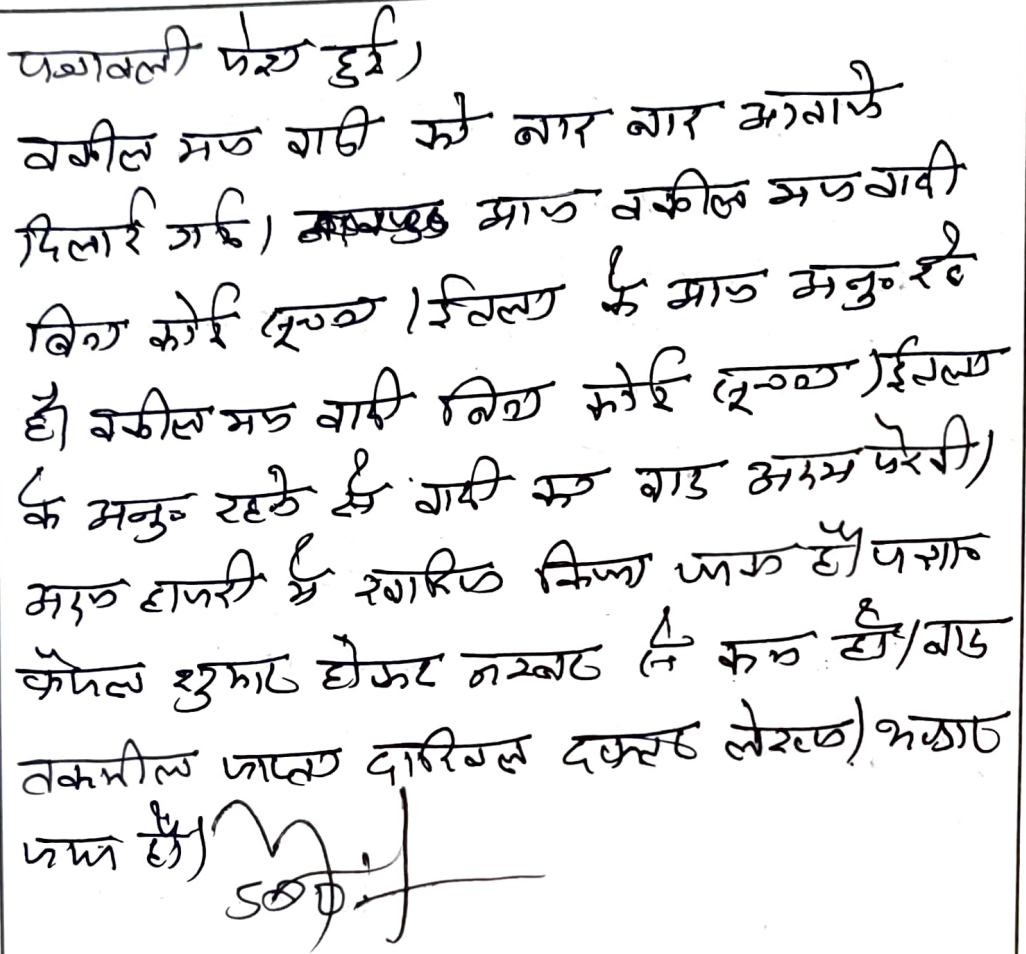 पत्रावली पेश हुई।
वकील मय वादी को बार बार आवाजे
दिलाई गई। आज वकील मय वादी
बिना कोई सूचना / ईतला के आज अनु० रहे
है। वकील मय वादी बिना कोई सूचना / ईतला
के अनु० रहने से वादी का वाद अदम पैरवी /
अदम हाजरी में खारिज किया जाता है। पत्रा०
फैसल शुमार होकर नम्बर से कम हो। बाद
तकमील जाप्ता दाखिल दफ्तर लेख०
SDO